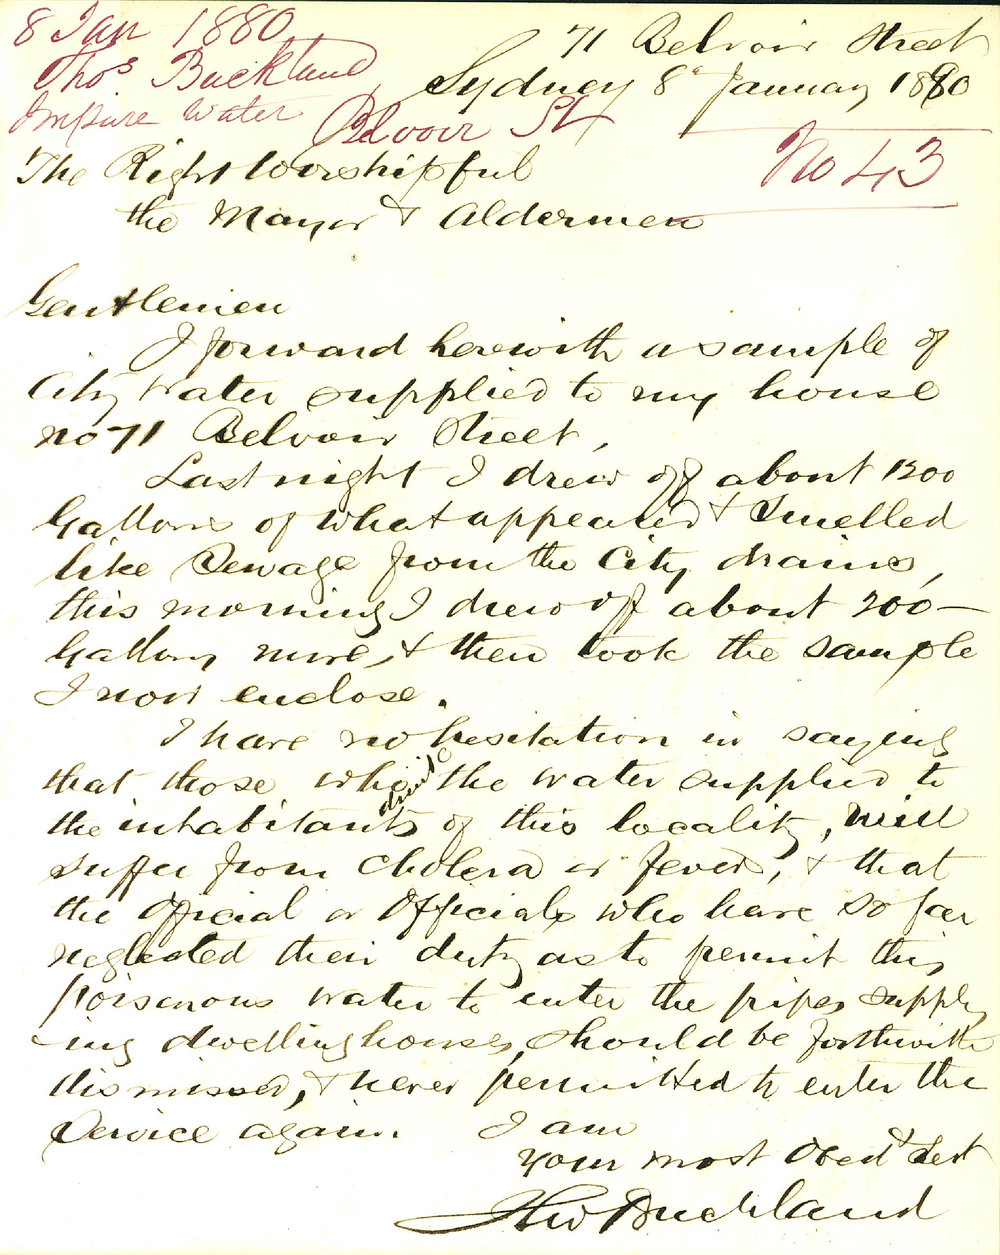 8 Jan 1880
Thos Buckland
Impure Water Belvoir St
No 43
71 Belvoir Street
Sydney 8th January 1880
The Right Worshipful
the Mayor & Aldermen
Gentlemen
I forward herewith a sample of
City Water supplied to my house
no 71 Belvoir Street,
Last night I drew off about 1200
Gallons of what appeared & Smelled
like Sewage from the City drains,
this morning I drew off about 200–
Gallons more, & then took the sample
I now enclose.
I have no hesitation in saying
that those who drink the water supplied to
the inhabitants of this locality, will
suffer from Cholera or fever, & that
the Official or Officials who have so far
neglected their duty as to permit this
poisonous water to enter the pipes supply
-ing dwelling houses, should be forthwith
dismissed, & never permitted to enter the
Service again. I am
your most Obedt Servt
Thos Buckland